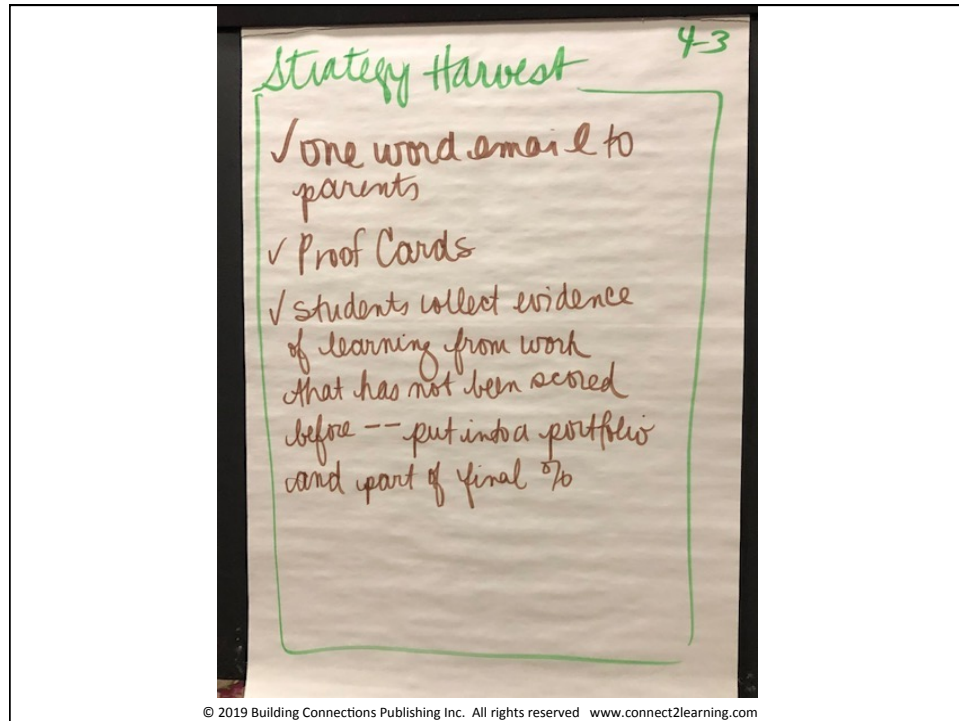 4-3
Strategy Harvest
✓ one word email to
parents
✓ Proof Cards
✓ students collect evidence
of learning from work
that has not been scored
before -- put into a portfolio
and part of final %
© 2019 Building Connections Publishing Inc. All rights reserved www.connect2learning.com